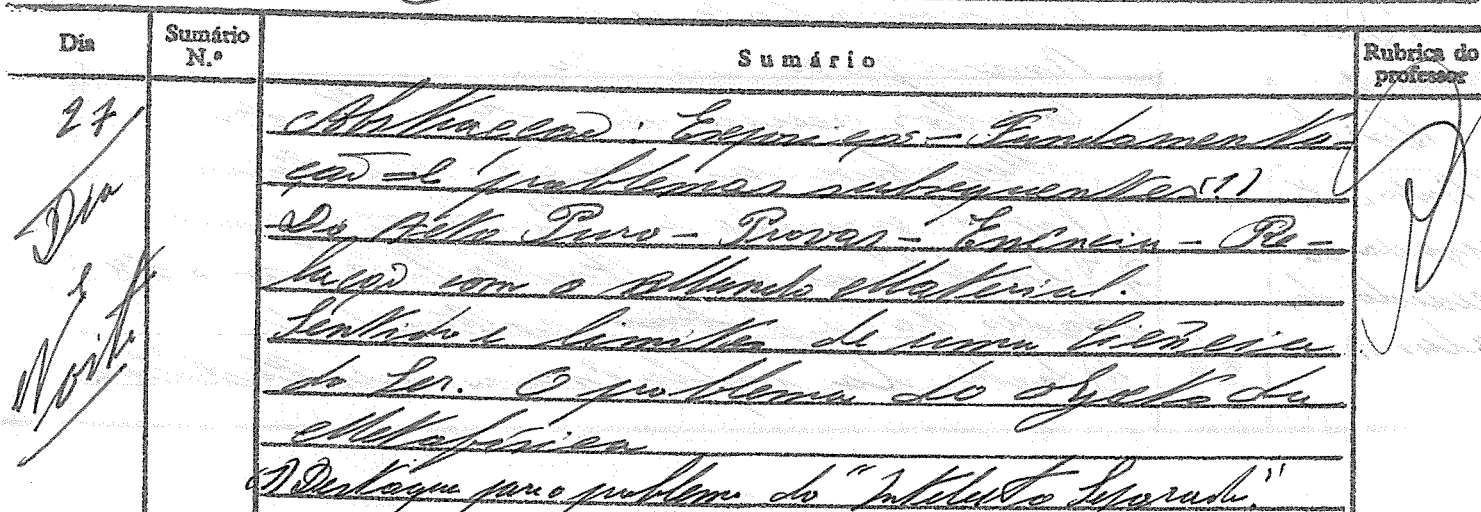 Dia Sumário N.º Sumário Rubrica do professor
27 Abstracção: Exposição - Fundamenta-
Dia ção e problemas subsequentes (1)
Do Acto Puro - Provas - Essência - Re-
e lação com o Mundo Material.
Noite Sentido e limites de uma Ciência
do Ser. O problema do objecto da
Metafísica
(1) Destaque para o problema do "Intelecto Separado"